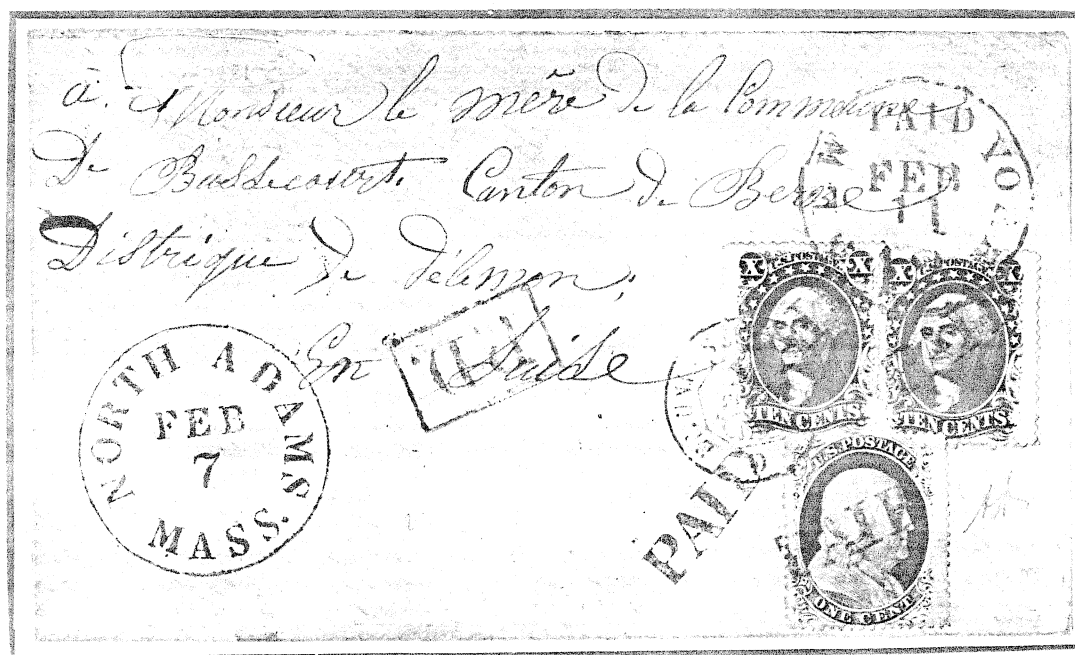 à Monsieur le mère de la Commune
De Bassecourt. Canton de Berne
Distrique de délemon,
En Suise
PAID
FEB
11
NEW YORK
NORTH ADAMS
FEB
7
MASS.
PD
PAID
X U.S. POSTAGE X
TEN CENTS
X U.S. POSTAGE X
TEN CENTS
U.S. POSTAGE
ONE CENT